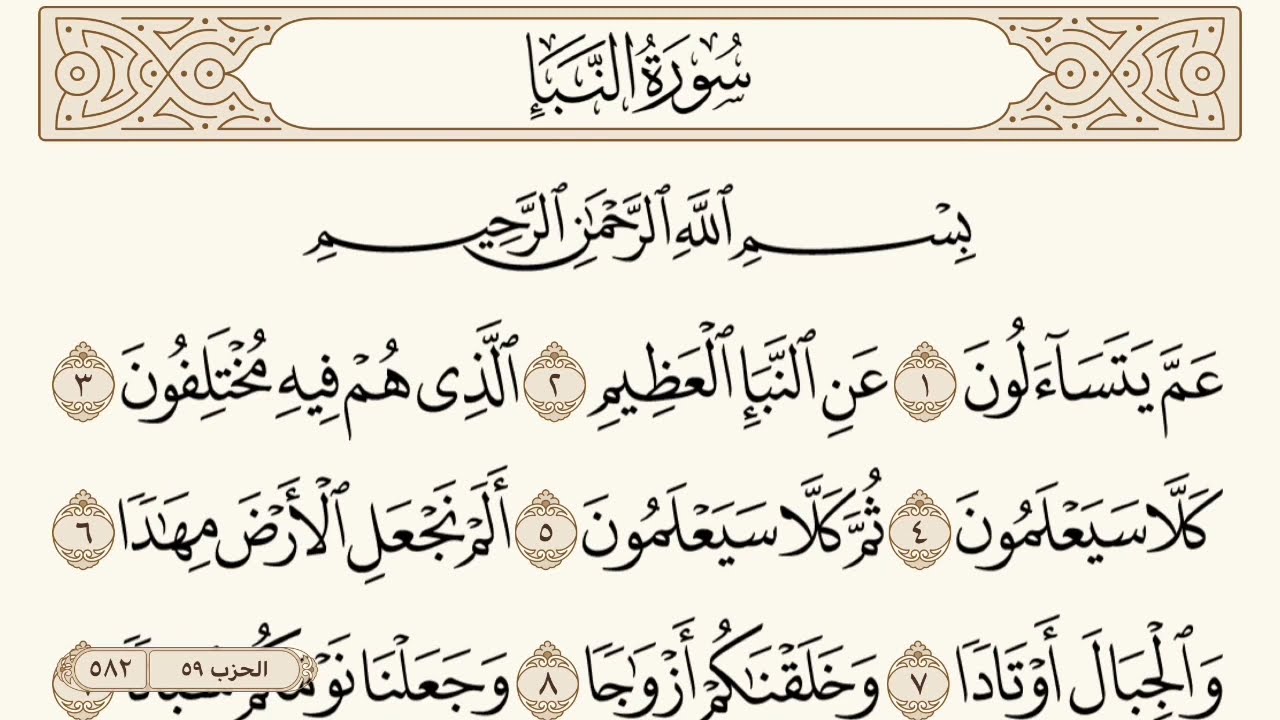 سُورَةُ النَّبَإِ
بِسْمِ ٱللَّهِ ٱلرَّحْمَٰنِ ٱلرَّحِيمِ
عَمَّ يَتَسَآءَلُونَ ١ عَنِ ٱلنَّبَإِ ٱلْعَظِيمِ ٢ ٱلَّذِى هُمْ فِيهِ مُخْتَلِفُونَ ٣
كَلَّا سَيَعْلَمُونَ ٤ ثُمَّ كَلَّا سَيَعْلَمُونَ ٥ أَلَمْ نَجْعَلِ ٱلْأَرْضَ مِهَٰدًا ٦
وَٱلْجِبَالَ أَوْتَادًا ٧ وَخَلَقْنَٰكُمْ أَزْوَٰجًا ٨ وَجَعَلْنَا نَوْمَكُمْ
الحزب ٥٩ ٥٨٢